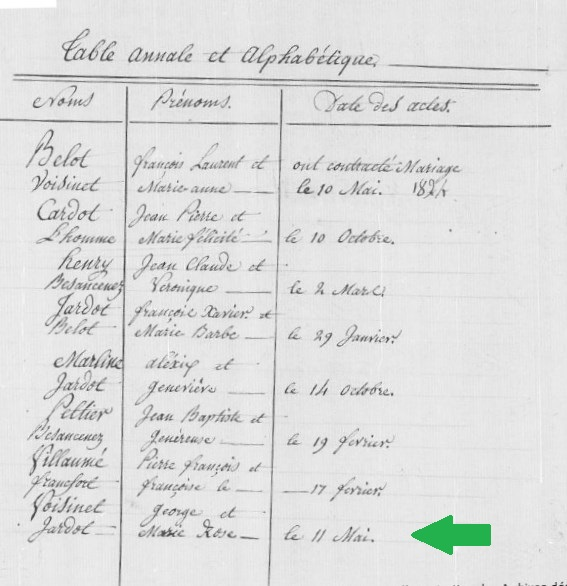 Table annale et Alphabétique.
Noms Prénoms. Date des actes.
Belot françois Laurent et ont contracté Mariage
Voisinet Marie anne le 10 Mai. 1824
Cardot Jean Pierre et
Lhomme Marie félicité le 10 Octobre.
henry Jean Claude et
Besancenez Veronique le 2 Mars.
Jardot françois Xavier et
Belot Marie Barbe le 29 Janvier.
alexis et
Jardot Geneviève le 14 Octobre.
Peltier Jean Baptiste et
Besancenez Généreuse le 19 fevrier.
Villaumé Pierre françois et
francfort françoise le 17 fevrier.
Voisinet George et
Jardot Marie Rose le 11 Mai.